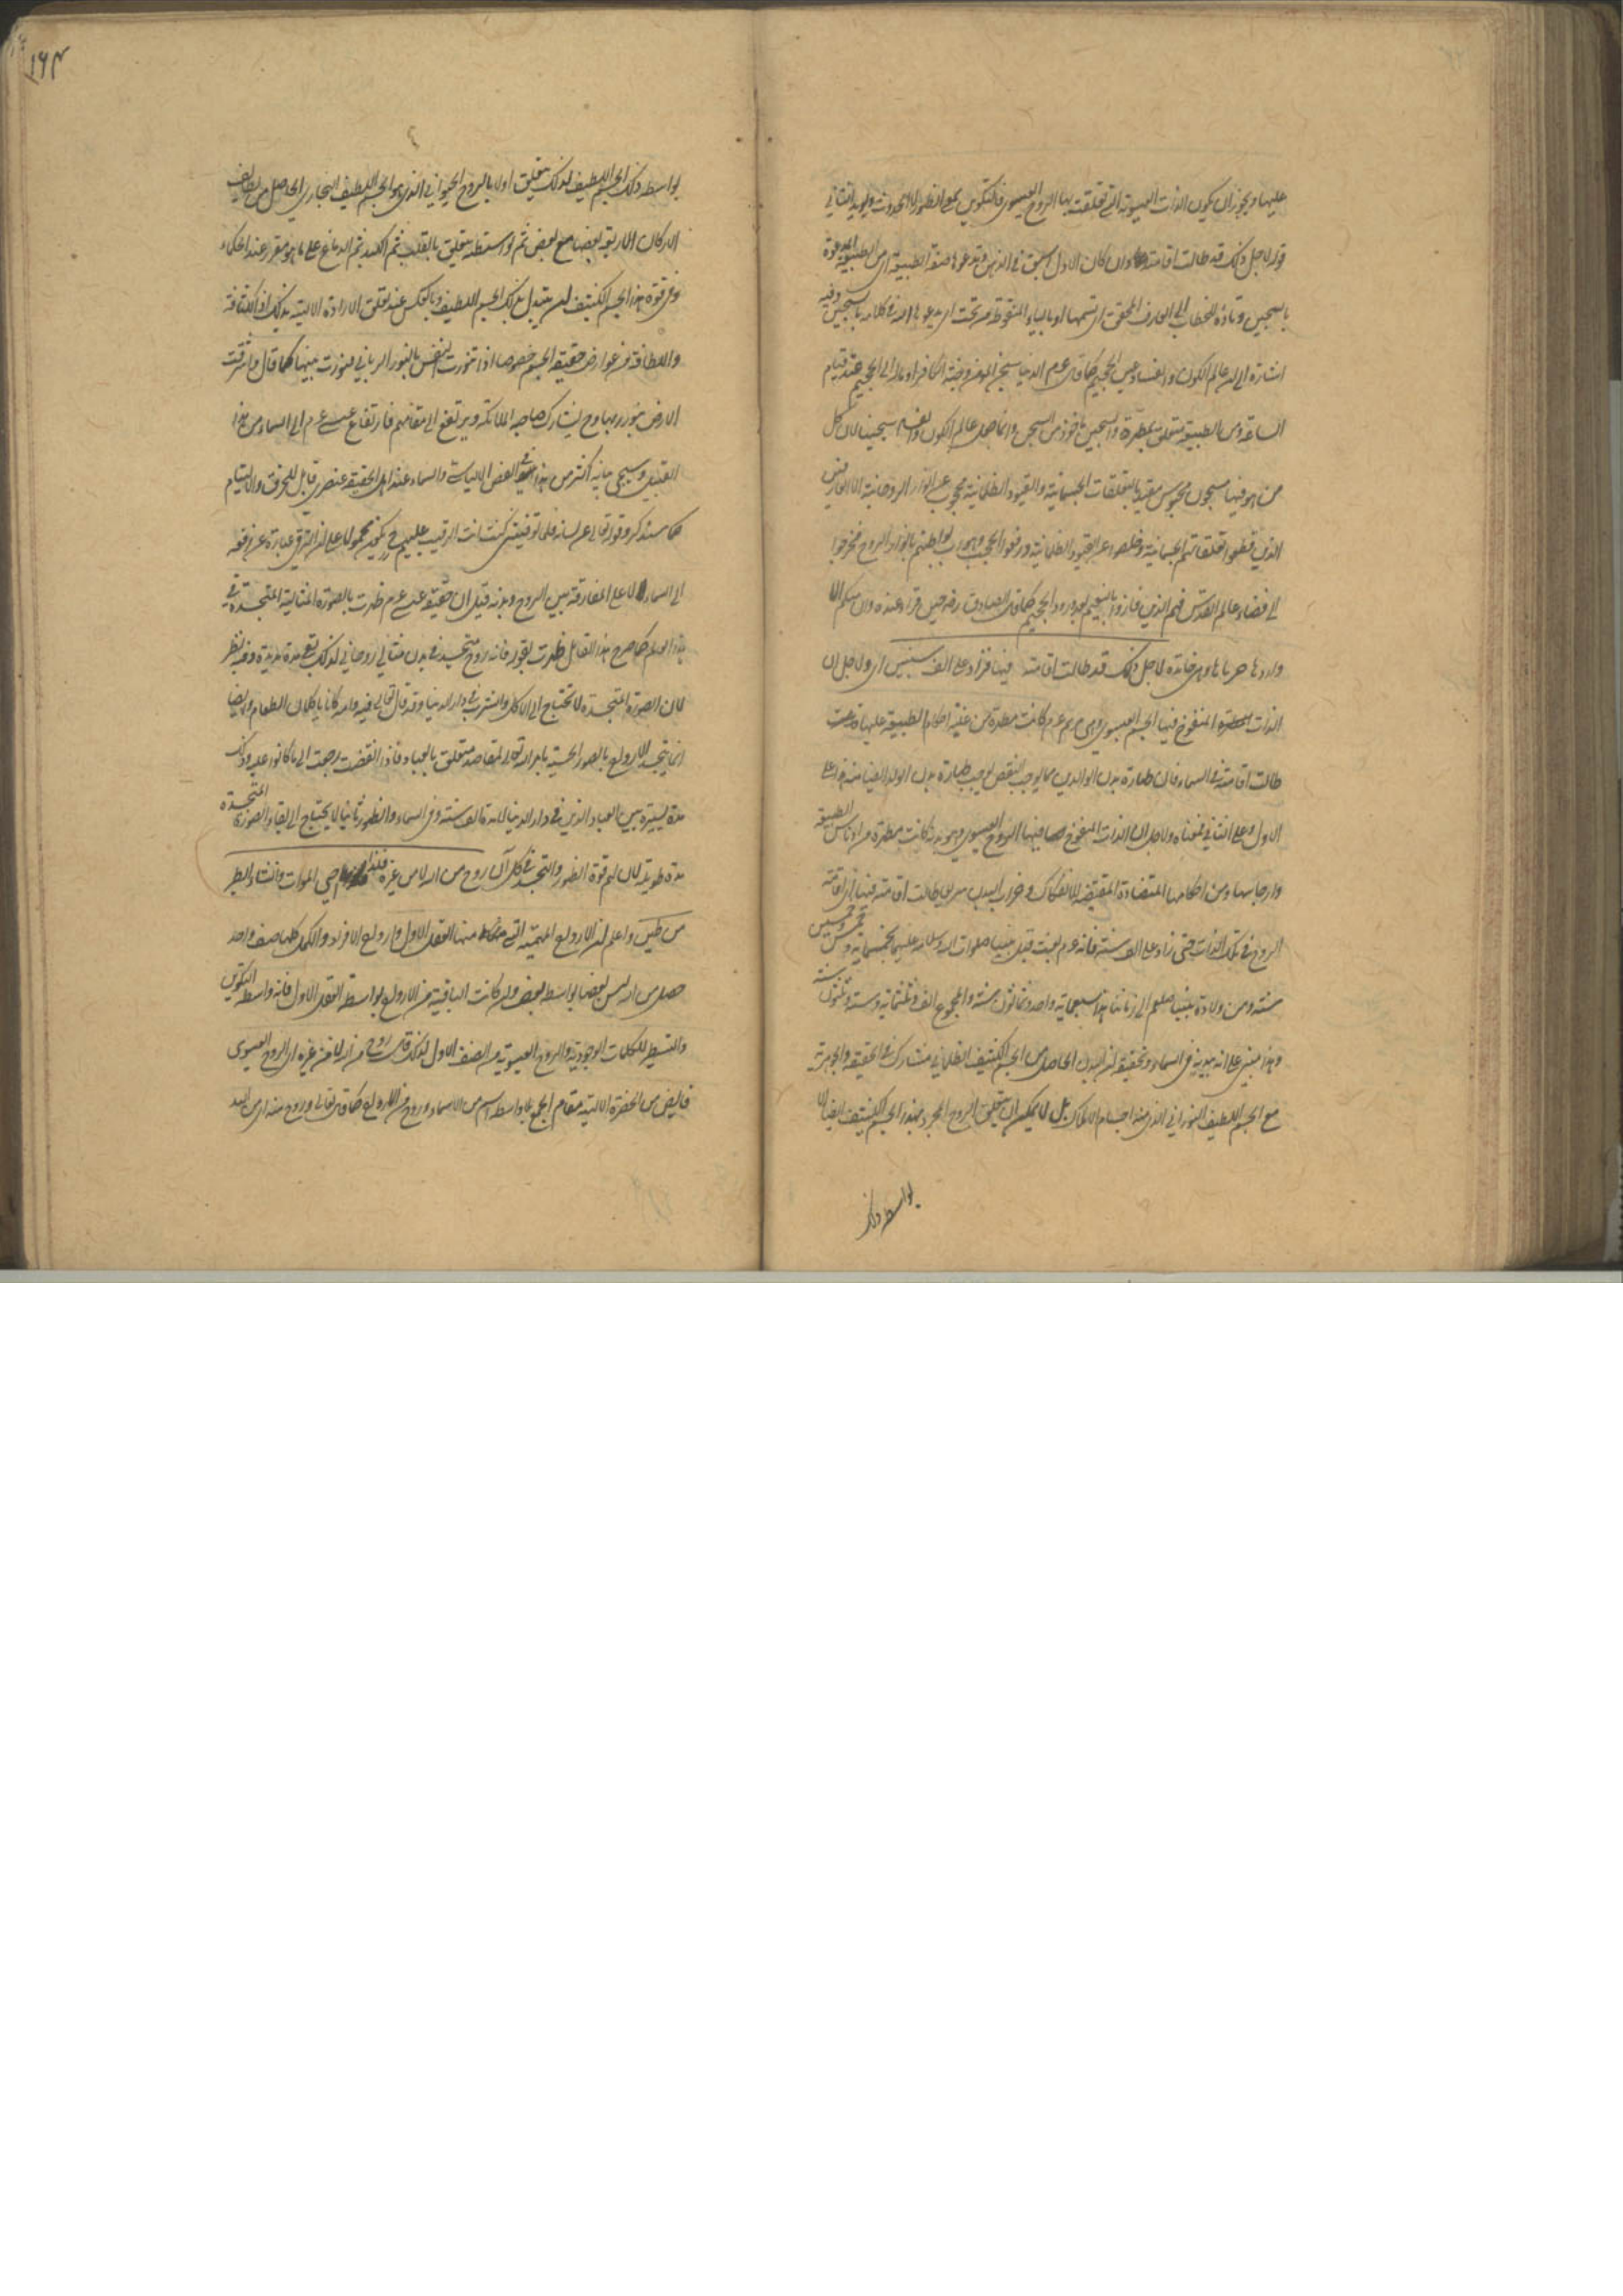 عليها ويجوز ان يكون الذات العيسوية التي تعلقت بها الروح العيسوي فالتكوين بمعنى الظهور لا الحدوث ويؤيد الثاني
قوله لاجل ذلك قد طالت اقامته وان كان الاول اسبق في الذهن وتدعوها صفة الطبيعة اي من الطبيعة المدعوة
بسجين وتاؤه للخطاب الى العارف المحقق اي تسميها او بالياء المنقوطة من تحت اي يدعوها الله في كلامه بسجين وفيه
اشارة الى ان عالم الكون والفساد عين الجحيم كما قال عم الدنيا سجن المؤمن وجنة الكافر او مآله الى الجحيم عند قيام
الساعة ومن الطبيعة متعلق بمطهرة والسجين ماخوذ من السجن وانما جعل عالم الكون والفساد سجينا لان كل
من هو فيها مسجون محبوس مقيد بالتعلقات الجسمانية والقيود الظلمانية محجوب عن الانوار الروحانية الا العارفين
الذين قطعوا تعلقاتهم الجسمانية وخلصوا عن القيود الظلمانية ورفعوا الحجب بواطنهم بانوار الروح فخرجوا
الى فضاء عالم القدس فهم الذين فازوا بالنعيم بعد ورود الجحيم كما قال الصادق رضه حين قراء عنده وان منكم الا
واردها جزناها وهي خامدة لاجل ذلك قد طالت اقامته فيها فزاد على الف سنين اي ولاجل ان
الذات المنفوخ فيها الجسم العيسوي وهي مريم عم كانت مطهرة من غلبة احكام الطبيعة عليها
طالت اقامته في السماء فان طهارة بدن الوالدين مما يوجب طهارة بدن الولد ايضا هذا على
الاول وعلى الثاني فمعناه ولاجل ان الذات المنفوخ فيها الروح العيسوي وهو بدنه كانت مطهرة من ادناس الطبيعة
وارجاسها ومن احكامها المتضادة المقتضية للانفكاك وخراب البدن سريعا طالت اقامته فيها اي اقامة
الروح في تلك الذات حتى زاد على الف سنة فانه عم بعث قبل نبينا صلوات الله وسلامه عليهما بخمسمائة وخمس وخمسين
سنة ومن ولادة نبينا صلعم الى زماننا هذا سبعمائة واحد وثمانون سنة والمجموع الف وثلثمائة وستة وثلثون سنة
وهذا مبني على انه ببدنه في السماء وتحقيقه ان البدن الحاصل من الجسم الكثيف الظلماني مشارك في الحقيقة والجوهرية
مع الجسم اللطيف النوراني الذي منه اجسام الافلاك بل لا يمكن ان يتعلق الروح المجرد بهذا الجسم الكثيف ايضا الا
بواسطة ذلك
١٦٤
بواسطة ذلك الجسم اللطيف لذلك يتعلق اولا بالروح الحيواني الذي هو الجسم اللطيف البخاري الحاصل من لطايف
الاركان الاربعة بعضها مع بعض ثم بواسطته يتعلق بالقلب ثم الكبد ثم الدماغ على ما هو مقرر عند الحكماء
وفي قوة هذا الجسم الكثيف ان يتبدل بذلك الجسم اللطيف وبالعكس عند تعلق الارادة الالهية بذلك اذ الكثافة
واللطافة من عوارض حقيقة الجسم خصوصا اذا تنورت النفس بالنور الرباني فنورت بيتها كما قال واشرقت
الارض بنور ربها وح يشارك صاحبه الملائكة ويرتفع الى مقامهم فارتفاع عيسى عم الى السماء من هذا
القبيل وسيجيء بيانه اكثر من هذا في الفص الالياسي والسماء عند اهل الحقيقة عنصري قابل للخرق والالتيام
كما سنذكره وقوله تعالى عن لسانه فلما توفيتني كنت انت الرقيب عليهم يكون محمولا على ان الترقي عبارة عن رفعه
الى السماء لا على المفارقة بين الروح وبدنه قيل ان حقيقة عيسى عم ظهرت بالصورة المثالية المتجسدة في
هذا العالم كما صرح هذا القائل ظهرت بقوله فانه روح متجسد في بدن مثالي روحاني لذلك بقي مدة مديدة وفيه نظر
لان الصورة المتجسدة لا تحتاج الى الاكل والشرب في دار الدنيا وقد قال تعالى فيه وامه كانا ياكلان الطعام وايضا
انما يتجسد الارواح بالصور الحسية بامر الله لمقاصد متعلق بالعباد فاذا انقضت رجعت الى ما كانوا عليه وذلك
مدة يسيرة بين العباد الذين في دار الدنيا لا مدة الف سنة وفي السماء والظهور ثانيا لا يحتاج الى بقاء الصورة المتجسدة
مدة طويلة لان لهم قوة الظهور والتجسد في كل آن روح من الله لا من غيره فلذا احيى الموات وانشاء الطير
من طين واعلم ان الارواح المهيمة التي منها العقل الاول وارواح الافراد والكمل كلها صف واحد
حصل من الله ليس بعضها بواسطة بعض وان كانت الباقية من الارواح بواسطة العقل الاول فانه واسطة التكوين
والتسطير للكلمات الوجودية والروح العيسوية من الصف الاول لذلك قال روح من الله لا من غيره اي الروح العيسوي
فايض من الحضرة الالهية مقام الجمع بلا واسطة اسم من الاسماء وروح من الارواح كما قال تعالى وروح منه اي من الله